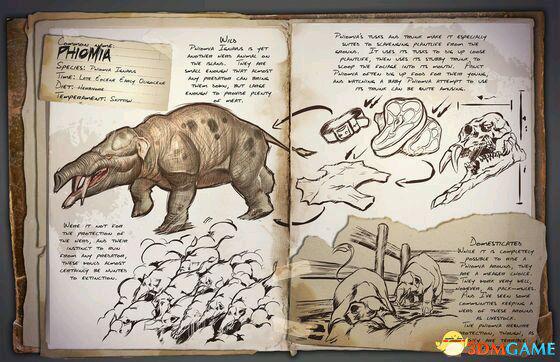 Common Name:
PHIOMIA
Species: Phiomia Ignavis
Time: Late Eocene Early Oligocene
Diet: Herbivore
Temperament: Skittish
Wild
Phiomia Ignavis is yet
another herd animal on
the island. They are
small enough that almost
any predator can take
them down, but large
enough to provide plenty
of meat.
Were it not for
the protection of
the herd, and their
instinct to run
from any predator,
these would almost
certainly be hunted
to extinction.
Phiomia's tusks and trunk make it especially
suited to scavenging plantlife from the
ground. It uses its tusks to dig up loose
plantlife, then uses its stubby trunk to
scoop the foliage into its mouth. Adult
Phiomia often dig up food for their young,
and watching a baby Phiomia attempt to use
its trunk can be quite amusing.
Domesticated
While it is completely
possible to ride a
Phiomia around, they
are a meager choice.
They work very well,
however, as pack-mules.
And I've seen some
communities keeping a
herd of these around
as livestock.
The Phiomia require
protection, though, as
they are terrible
3DMGAME